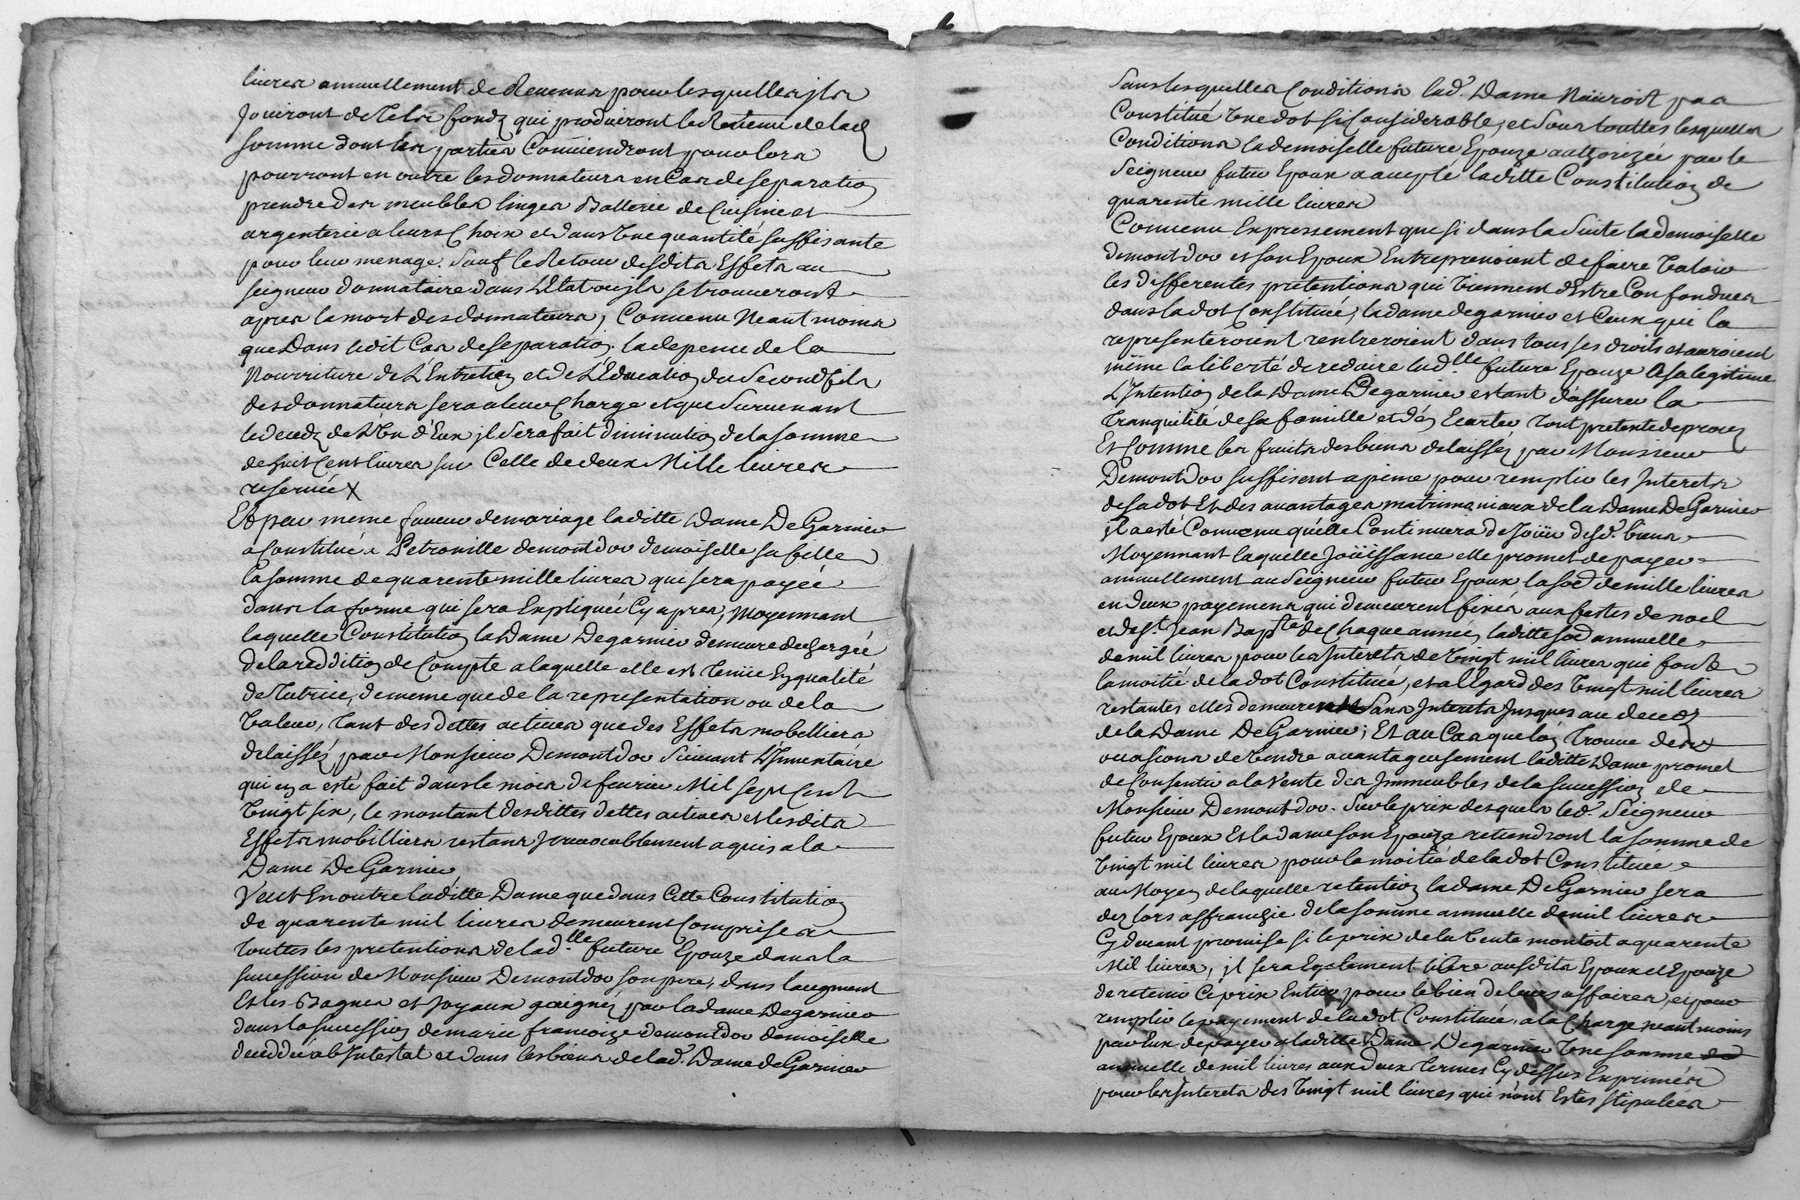 livres annuellement de Revenus pour lesquelles ils
Jouiront de Tels fondz qui produiront le Revenu de lad
somme dont les parties Conviendront pour lors
pourront en outre les donnateurs en Cas de separation
prendre des meubles linges Batterie de Cuisine et
argenterie a leurs Choix et dans Une quantité suffisante
pour leur menage. Sauf le Retour desdits Effets au
seigneur donnataire dans L'Etat ou ils se trouveront
apres la mort des donnateurs, Convenu Neantmoins
que Dans ledit Cas de separation la depence de la
Nourriture de L'Entretien et de L'Education du Second fils
des donnateurs sera a leur Charge et que Survenant
le decedz de L'Un d'Eux, il sera fait diminution de la somme
de huit Cent livres sur Celle de deux Mille livres
reservée
Et pour meme faveur de mariage laditte Dame De Garnier
a Constitué a Petronille demontdor demoiselle sa fille
la somme de quarente mille livres qui sera payée
dans la forme qui sera Expliquée Cy apres, moyennant
laquelle Constitution la Dame Degarnier demeure dechargée
de la reddition de Compte a laquelle elle est Tenüe En qualité
de Tutrice, de meme que de la representation ou de la
Valeur, tant des dettes actives que des Effets mobilliers
delaissez par Monsieur Demontdor Suivant L'Inventaire
qui en a esté fait dans le mois de fevrier Mil sept Cent
Vingt six, le montant desdittes dettes actives et lesdits
Effets mobilliers restans Irrevocablement aquis a la
Dame De Garnier
Veut En outre laditte Dame que dans Cette Constitution
de quarente mil livres demeurent Comprises
touttes les pretentions de lad.lle future Epouze dans la
succession de Monsieur Demontdor son pere, dans l'augment
Et les Bagues et Joyaux gaignez par la dame Degarnier
dans la succession de marie francoize demontdor demoiselle
deceddée ab Intestat et dans les biens de lad. Dame de Garnier
Sans lesquelles Conditions lad. Dame N'auroit pas
Constitué Une dot si Considerable, et sous touttes lesquelles
Conditions la demoiselle future Epouze authorizée par le
Seigneur futur Epoux a accepté laditte Constitution de
quarente mille livres
Convenu Expressement que si dans la Suite la demoiselle
demontdor et son Epoux Entreprenoient de faire Valoir
les differentes pretentions qui Viennent d'Estre Confondues
dans la dot Constituée, la dame degarnier et Ceux qui la
representeroient rentreroient dans tous ses droits et auroient
même la liberté de reduire lad.lle future Epouze A sa legitime
L'Intention de la Dame Degarnier estant d'assurer la
Tranquilité de sa famille et d'En Ecarter Tout pretexte de procez
Et Comme les fruits des biens delaissez par Monsieur
Demontdor suffisent a peine pour remplir les Interets
de sa dot Et des avantages matrimoniaux de la Dame De Garnier
il a esté Convenu qu'elle Continuera de Jouir desd. biens
Moyennant laquelle Joüissance elle promet de payer
annuellement au Seigneur futur Epoux la soe de mille livres
en deux payemens qui demeurent fixés aux festes de noel
et de St Jean Bapte de Chaque année, laditte soe annuelle
de mil livres pour les Interets de Vingt mil livres qui font
la moitié de la dot Constituée, et a l'Egard des Vingt mil livres
restantes elles demeurent Sans Interets Jusques au decedz
de la Dame De Garnier; Et au Cas que lon Trouve des
occasions de Vendre avantageusement laditte Dame promet
de Consentir a la Vente des Immeubles de la succession de
Monsieur Demontdor. Sur le prix desquels led. Seigneur
futur Epoux Et la dame son Epouze retiendront la somme de
Vingt mil livres pour la moitié de la dot Constituée
au Moyen de laquelle retention la dame De Garnier sera
dez lors affranchie de la somme annuelle de mil livres
Cy devant promise si le prix de la Vente montoit a quarente
Mil livres, il sera Egalement libre ausdits Epoux et Epouze
de retenir Ce prix Entier pour le bien de leurs affaires, et pour
remplir le payement de la dot Constituée, a la Charge neantmoins
par Eux de payer a laditte Dame Degarnier Une somme
annuelle de mil livres aux deux Termes Cy dessus Exprimés
pour les Interets des Vingt mil livres qui n'ont Estés stipulées